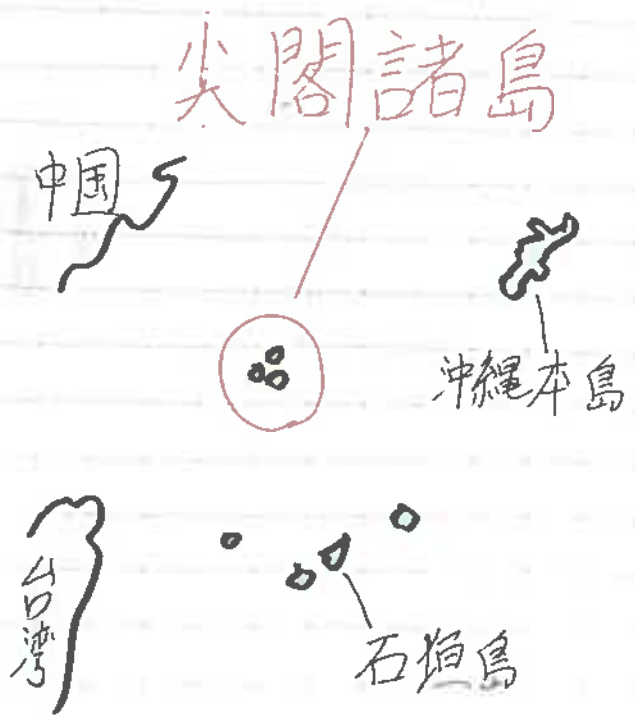 尖閣諸島
中国
沖縄本島
台湾
石垣島